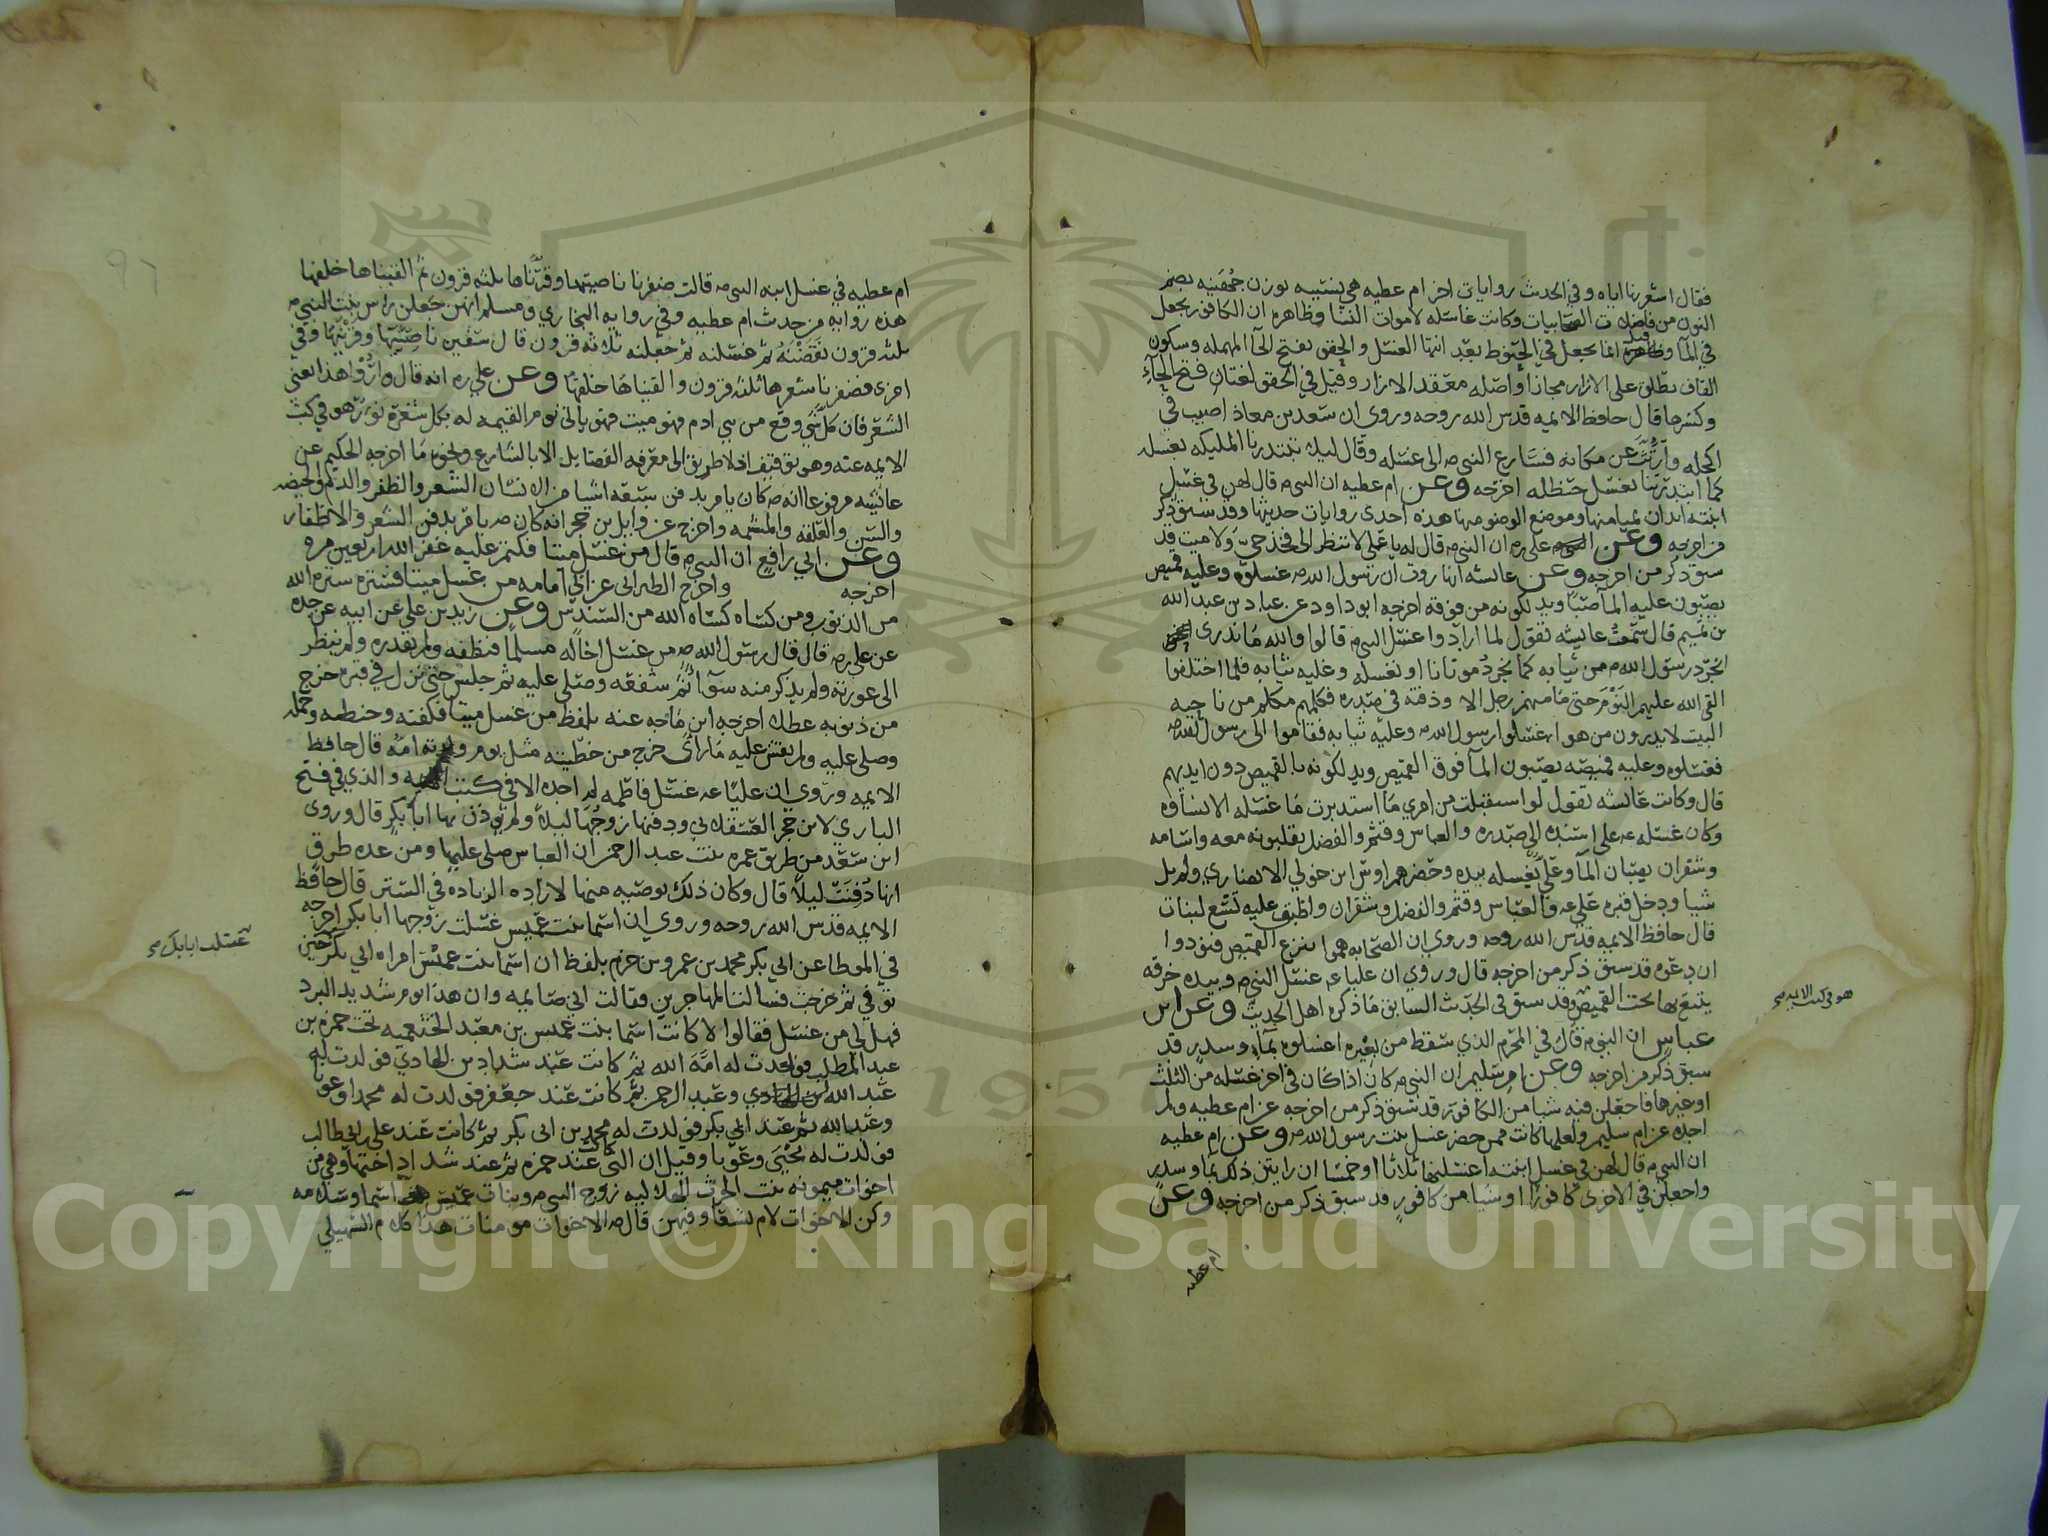 فقال اشعرنها اياه وفي الحدث روايات اخر ام عطيه هي نسيبه بوزن جهينه بضم
النون من فاضلات الصحابيات وكانت غاسله لاموات النسا وظاهره ان الكافور يجعل
في المآ وقيل انما يجعل في الحنوط بعد انتها الغسل والحقو بفتح الحآ المهمله وسكون
القاف يطلق على الازار مجازا واصله معقد الازار وقيل في الحقو لغتان فتح الحآء
وكسرها قال حافظ الايمه قدس الله روحه وروى ان سعد بن معاذ اصيب في
اكحله عن مكانه فسارع النبي صه الى غسله وقال ليلا تبتدرنا المليكه بغسله
كما ابتدرتنا بغسل حنظله اخرجه وعن ام عطيه ان النبي صه قال لهن في غسل
ابنته ابدان بميامنها ومواضع الوضو منها هذه احدى روايات حديثها وقد سبق ذكر
من اخرجه وعن علي ره ان النبي صه قال له يا علي لا تنظر الى فخذ حي ولا ميت قد
سبق ذكر من اخرجه وعن عائشه انها روت ان رسول الله صه غسلوه وعليه قميص
يصبون عليه المآ صبا ويدلكونه من فوقه اخرجه ابو داود عن عباد بن عبد الله
بن تميم قال سمعت عايشه تقول لما ارادوا غسل النبي صه قالوا والله ما ندري
انجرد رسول الله صه من ثيابه كما نجرد موتانا او نغسله وعليه ثيابه فلما اختلفوا
القى الله عليهم النوم حتى ما منهم رجل الا وذقنه في صدره فكلمهم مكلم من ناحيه
البيت لا يدرون من هو اغسلوا رسول الله صه وعليه ثيابه فقاموا الى رسول الله صه
فغسلوه وعليه قميصه يصبون المآ فوق القميص ويدلكونه بالقميص دون ايديهم
قال وكانت عائشه تقول لو استقبلت من امري ما استدبرت ما غسله الا نساوه
وكان غسله عه علي اسنده الى صدره والعباس وقثم والفضل يقلبونه معه واسامه
وشقران يصبان المآ وعلي يغسله بيده وحضرهم اوس ابن خولي الانصاري ولم يل
شيا ودخل قبره علي عه والعباس وقثم والفضل وشقران واطبق عليه تسع لبنات
قال حافظ الايمه قدس الله روحه وروى ان الصحابه هموا بنزع القميص فنودوا
ان دعوه قد سبق ذكر من اخرجه قال وروي ان عليا عه غسل النبي صه وبيده خرقه
يتبع بها تحت القميص وقد سبق في الحدث السابق ما ذكره اهل الحديث وعن ابن
عباس ان النبي صه قال في المحرم الذي سقط من بعيره اغسلوه بمآء وسدر قد
سبق ذكر من اخرجه وعن ام سليم ان النبي صه كان اذا كان في اخر غسله من الثلث
او غيرها فاجعلن فيه شيا من الكافور قد سبق ذكر من اخرجه عن ام عطيه ولم
اجده عن ام سليم ولعلها كانت ممن حضر غسل بنت رسول الله صه وعن ام عطيه
ان النبي صه قال لهن في غسل ابنته اغسلنها ثلاثا او خمسا ان رايتن ذلك بما وسدر
واجعلن في الاخرى كافورا او شيا من كافور قد سبق ذكر من اخرجه وعن
ام عطيه
هو في كتب الايمه صح
ام عطيه في غسل ابنه النبي صه قالت ضفرنا ناصيتها وقرناها بلثه قرون ثم القيناها خلفها
هذه روايه من حدث ام عطيه وفي روايه البخاري ومسلم انهن جعلن راس بنت النبي صه
بلثه قرون نقضنه ثم غسلنه ثم جعلنه ثلاثه قرون قال سفين ناصيتها وقرنيها وفي
اخرى فضفرنا شعرها ثلثه قرون والقيناها خلفها وعن علي ره انه قال واروا هذا يعني
الشعر فان كل شي وقع من بني ادم فهو ميت فهو ياتي يوم القيمه له بكل شعره نور هو في كتب
الايمه عنه وهو توقيف اذ لا طريق الى معرفه الفضايل الا بالشارع ونحوه ما اخرجه الحكيم عن
عائشه مرفوعا انه صه كان يامر بدفن سبعه اشيا من الانسان الشعر والظفر والدم والحيضه
والسن والعلقه والمشيمه واخرج عن وايل بن حجر انه كان صه يامر بدفن الشعر والاظفار
وعن ابي رافع ان النبي صه قال من غسل ميتا فكتم عليه غفر الله اربعين مره
اخرجه واخرج الطبراني عن ابي امامه من غسل ميتا فستره ستره الله
من الذنوب ومن كساه كساه الله من السندس وعن زيد بن علي عن ابيه عن جده
عن علي ره قال قال رسول الله صه من غسل اخا له مسلما فنظفه ولم يقذره ولم ينظر
الى عورته ولم يذكر منه سوآ ثم شفعه وصلى عليه ثم جلس حتى نزل في قبره خرج
من ذنوبه عطلا اخرجه ابن ماجه عنه بلفظ من غسل ميتا فكفنه وحنطه وحمله
وصلى عليه ولم يفش عليه ما راى خرج من خطيته مثل يوم ولدته امه قال حافظ
الايمه وروي ان عليا عه غسل فاطمه لم اجده الا في كتب والذي في فتح
الباري لابن حجر العسقلاني ودفنها زوجها ليلا ولم يوذن بها ابا بكر قال وروى
ابن سعد من طريق عمره بنت عبد الرحمن ان العباس صلى عليها ومن عده طرق
انها دفنت ليلا قال وكان ذلك بوصيه منها لاراده الزياده في الستر قال حافظ
الايمه قدس الله روحه وروي ان اسما بنت عميس غسلت زوجها ابا بكر اخرجه
في الموطا عن ابي بكر محمد بن عمرو بن حزم بلفظ ان اسما بنت عميس امراه ابي بكر حين
توفي ثم خرجت فسالت المهاجرين فقالت اني صايمه وان هذا يوم شديد البرد
فهل لي من غسل فقالوا لا كانت اسما بنت عميس بن معبد الخثعميه تحت حمزه بن
عبد المطلب فولدت له امة الله ثم كانت عند شداد بن الهادي فولدت له
عبد الله وعبد الرحمن ثم كانت عند جعفر فولدت له محمدا وعونا
وعبد الله ثم عند ابي بكر فولدت له محمد بن ابي بكر ثم كانت عند علي بن ابي طالب
فولدت له يحيى وعونا وقيل ان التي كانت عند حمزه ثم عند شداد اختها وهي من
اخوات ميمونه بنت الحرث الهلاليه زوج النبي صه وبنات عميس اسما وسلامه
وكن الاخوات لام تسعا وفيهن قال صه الاخوات مومنات هذا كلام السهيلي
غسلت ابا بكر صح